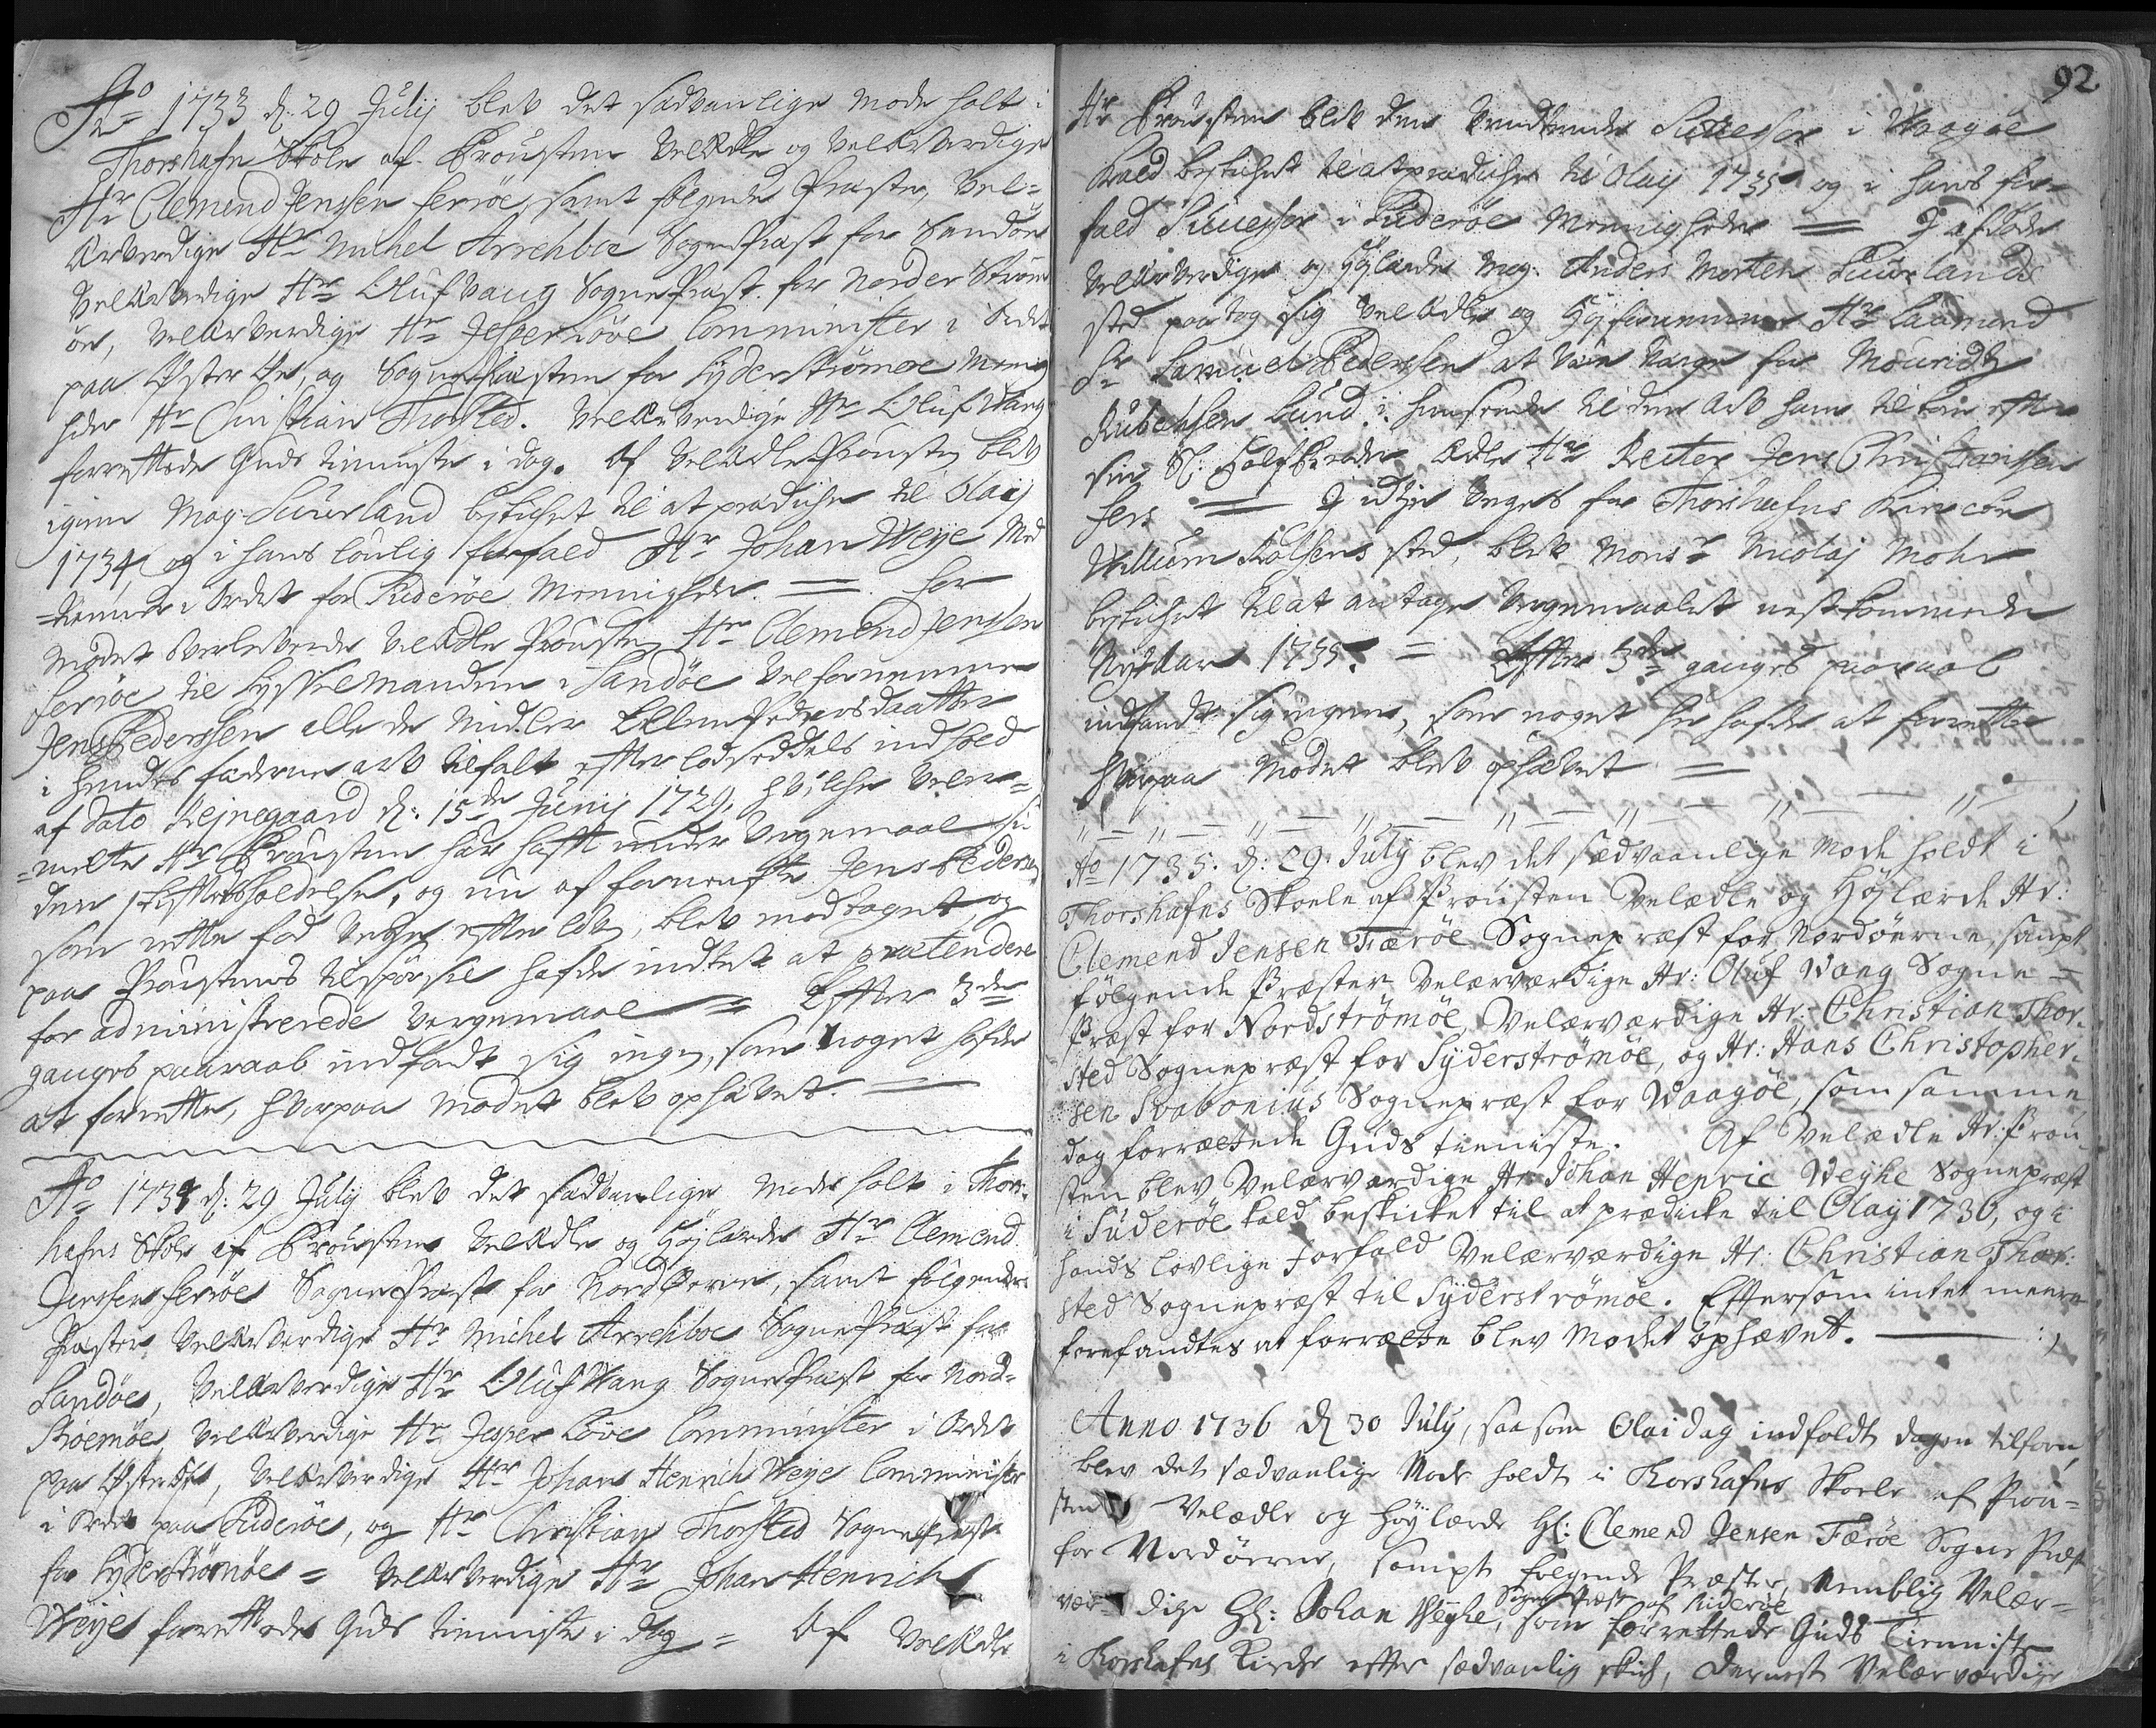 Ao 1733 d: 29 Julij blev det sædvanlige Mode holt i
Thorshafn Skole af Proústen VelÆdle og VelærVerdige
Hr Clemend Jenssen Ferröe, samt fölgende Præster, Vel-
ærverdige Hr Michel Arrehboe SognePræst for Sandöe
VelærVerdige Hr Oluf Vang Sogne Præst for Norder Ström
öe, VelærVerdige Hr Jesper Löve Comminister i Ordet
paa Öster Öe, og SognePræsten for Syderströmöe Menig
heder Hr Christian Thorsted. VelærVerdige Hr Oluf Wang
forrettede Guds tienniste i dag. Af VelÆdle Proústen blev
igien Mag: Suurland beskichet til at prædiche til Olaij
1734, og i hans loulig forfald Hr Johan Weije Med
-tiener i Ordet for Suderöe Menigheder. = For
Modet overleverede VelÆdle Proústen Hr Clemend Jenssen
Ferröe til Sysselmanden i Sandöe Velfornemme
Jens Pederssen alle de Midler Ellen Pedersdaatter
i hendes fæderne arv tilfalt efter lodseddels indhold
af dato Rejnegaard d: 15de Junij 1729, hvilche Velbe-
-melte Hr Proústen har hafft under Vergemaal si
den skifftets holdelse, og nu af fornefnte Jens Pederssen
som rette fød Verge effter lov, blev modtaget, og
paa Proústens tilspörsel hafde indtet at prætendere
for administrerede Vergemaal = Effter 3de
ganges paaraab indfandt sig ingen, som noget hafde
at forrette, hvorpaa Modet blev ophævet. =
Ao 1734 d: 29 Julij blev det sædvanlige Mode holt i Thors-
hafns Skole af Proústen VelÆdle og Höjlærde Hr Clemend
Jenssen Ferröe SognePræst for Nordöerne, samt fölgende
Præster, VelærVerdige Hr Michel Arrehboe SognePræst for
Sandöe, VelærVerdige Hr Oluf Wang SognePræst for Nord-
Ströemöe, VelærVerdige Hr Jesper Löve Comminister i Ordet
paa Österöe, VelærVerdige Hr Johan Henrich Weije Comminister
i Ordet paa Suderöe, og Hr Christian Thorsted SognePræst
for Syderströmöe = VelærVerdige Hr Johan Henrich
Weije forrettede Guds tienniste i dag = Af VelÆdle
92
Hr Proústen blev den Vendtende Successor i Waagöe
Kald beskichet til at prædiche til Olaij 1735 og i hans for-
fald Successor i Suderöe Menigheder = I afdöde
VelærVerdige og Höjlærde Mag: Anders Morten Suurlands
sted paatog sig VelÆdle og Höjfornemme Hr Laumand
Sr Samuel Pederssen at være Verge for Mouridtz
Rubekssen Lund, i henseende til den arv ham tilkom efter
sin Sl: Halfbroder Ædle Hr Recter Jens Christianssen
Fers = I udtjent Verges for Thorshafns
Willum Rolfsens sted, blev Monsr Nicolaj Mohr
beskichet til at antage Vergemaalet nestkommende
Nyt Aar 1735. = Effter 3de ganges paaraab
indfandt sig ingen, som noget her hafde at forrette
hvorpaa Modet blev ophævet =
Ao 1735: d: 29: Julÿ blev det sædvaanlige Mode holdt i
Thorshafns Skoele af Proústen Velædle og Höjlærde Hr:
Clemend Jensen Færöe Sognepræst for Nordöerne, sampt
fölgende Præster Velærværdige Hr: Oluf Wang Sogne=
Præst for Nordströmöe, Velærværdige Hr: Christian Thor-
sted Sognepræst for Syderströmöe, og Hr: Hans Christopher-
sen Svabonius Sognepræst for Waagöe, som samme
dag forrættede Guds tieniste. Af Velædle Hr: Prou
sten blev Velærværdige Hr: Johan Henric Weyhe Sognepræst
i Süderöe kald beskicket til at prædicke til Olaÿ 1736, og i
hands lovlige Forfald Velærværdige Hr: Christian Thor:
sted Sognepræst til Syderströmöe. Effterson intet meere
forefandtes at forrætte blev Modet ophævet.
Anno 1736 d 30 July, saasom Olai dag indfaldt dagen tilforn,
blev det sædvanlige Mode holdt i Thorshafns Skoele af Prou-
sten Velædle og Höylærde Hl: Clemend Jensen Færöe Sogne Præst
for Nordöerne, sampt folgende Præster, nemblig Velær-
vær- dige Hl: Johan Weyhe, Sogne Præst af Suderöe som forrettede Guds Tienniste
i Thorshafns Kirche effter sædvanlig skich, dernest Velærværdige